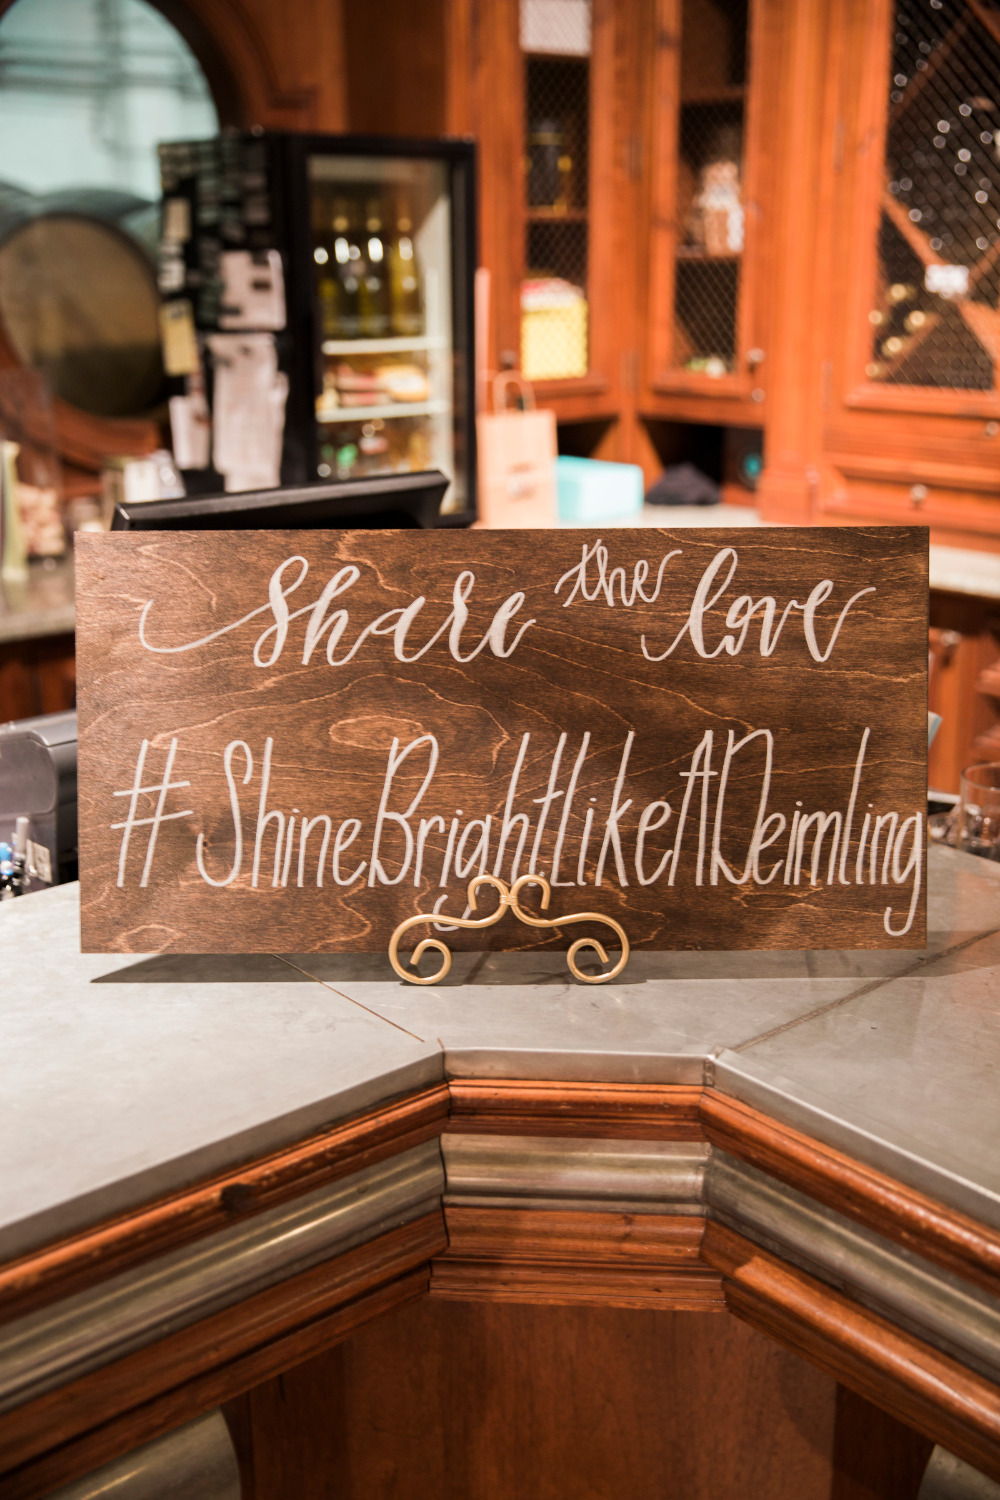 Share the love
#ShineBrightLikeADeimling